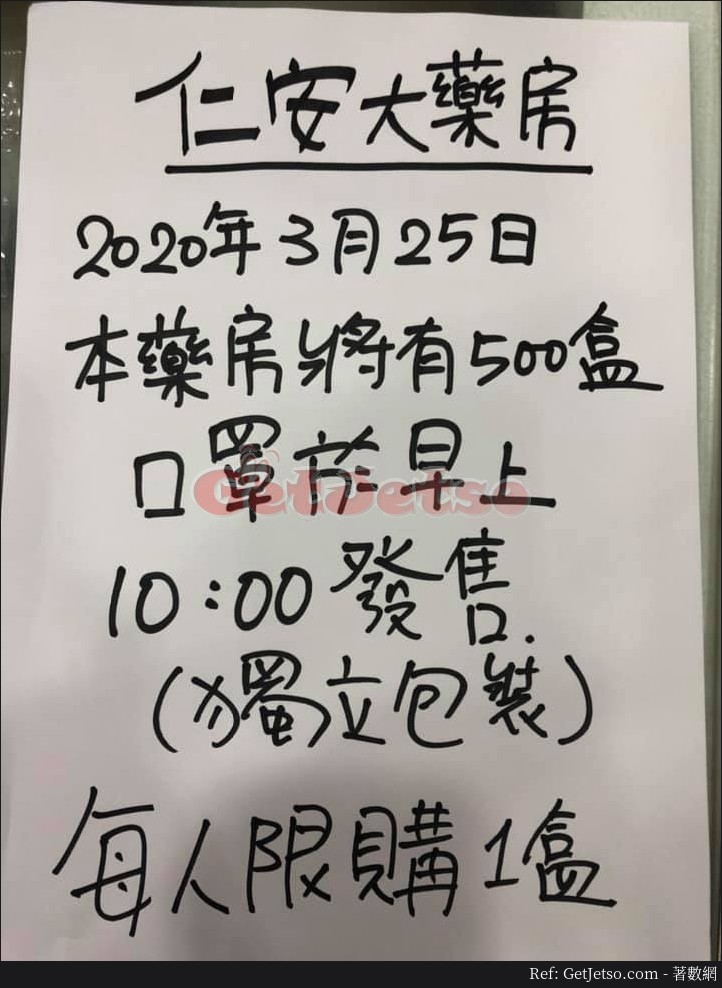 仁安大藥房
2020年3月25日
本藥房將有500盒
口罩於早上
GetJetso
10:00發售.
(獨立包裝)
每人限購1盒
Ref: GetJetso.com - 著數網